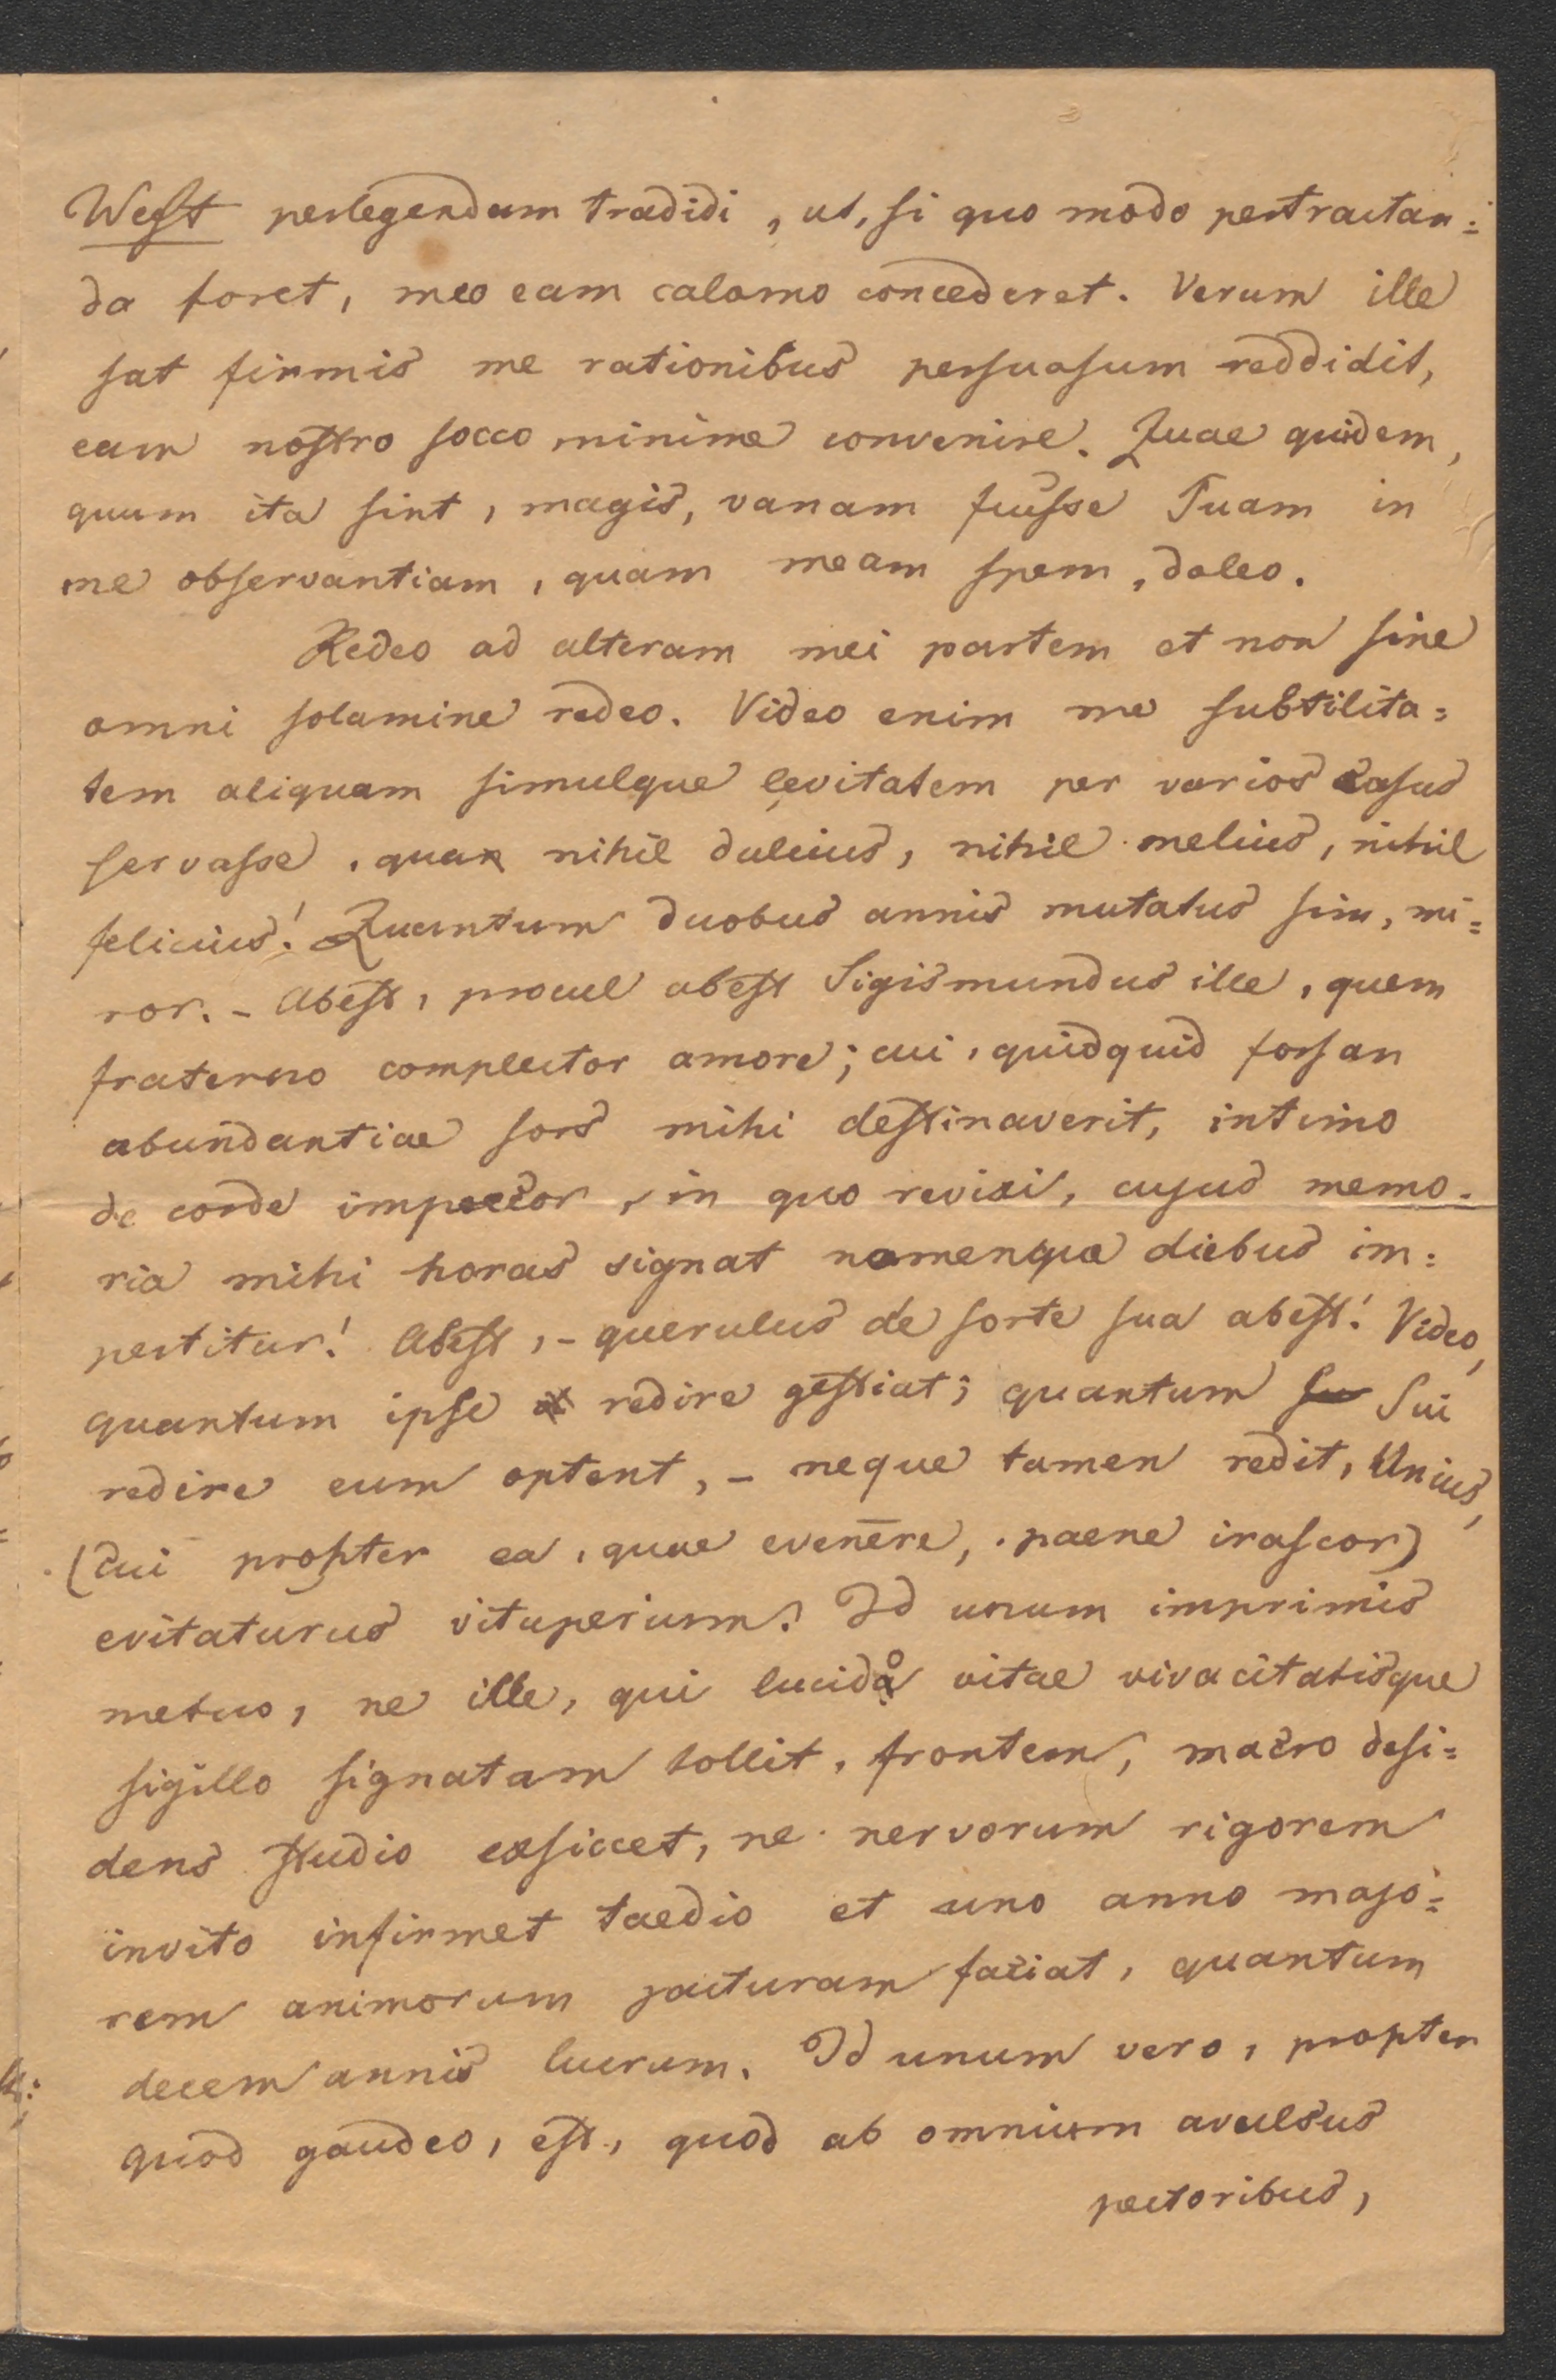 West perlegendam tradidi, ut, si quo modo pertractan=
da foret, meo eam calamo concederet. Verum ille
sat firmis me rationibus persuasum reddidit,
eam nostro socco minime convenire. Quae quidem,
quum ita sint, magis, vanam fuisse Tuam in
me observantiam, quam meam spem, doleo.
Redeo ad alteram mei partem et non sine
omni solamine redeo. Video enim me subtilita=
tem aliquam simulque levitatem per varios casus
servasse, qua nihil dulcius, nihil melius, nihil
felicius! Quantum duobus annis mutatus sim, mi=
ror. - Abest, procul abest Sigismundus ille, quem
fraterno complector amore; cui, quidquid forsan
abundantiae sors mihi destinaverit, intimo
de corde , in quo revixi, cujus memo=
ria mihi horas signat nomenque diebus im=
pertitur! Abest, - querulus de sorte sua abest! Video,
quantum ipse redire gestiat; quantum Sui
redire eum optent, - neque tamen redit, Unius,
(cui propter ea, quae evenēre, paene irascor)
evitaturus vituperium. Id unum imprimis
metuo, ne ille, qui lucidå vitae vivacitatisque
sigillo signatam tollit, frontem, macro desi=
dens studio exsiccet, ne nervorum rigorem
invito infirmet taedio et uno anno majo=
rem animorum jacturam faciat, quantum
decem annis lucrum. Id unum vero, propter
quod gaudeo, est, quod ab omnium avulsus
pectoribus,